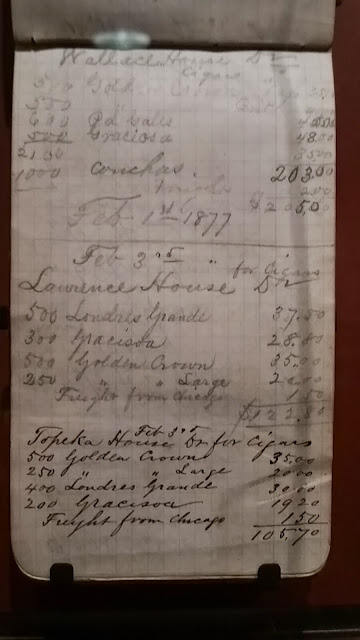 Wallace House Dr
Cigars
500 Gold Crown
550
600 Pd Calls
500 Graciosa 48.00
2150
1000 Conchas. 203.00
$205.00
Feb 1st 1877
Feb 3rd " for Cigars
Lawrence House Dr
500 Londres Grande 37.50
300 Gracisoa 28.80
500 Golden Crown 35.00
250 " " Large 20.00
Freight from Chicago 1.50
$122.80
Feb 3rd
Topeka House Dr for Cigars
500 Golden Crown 35.00
250 " " Large 20.00
400 Londres Grande 30.00
200 Gracisoa 19.20
Freight from Chicago 1.50
105.70